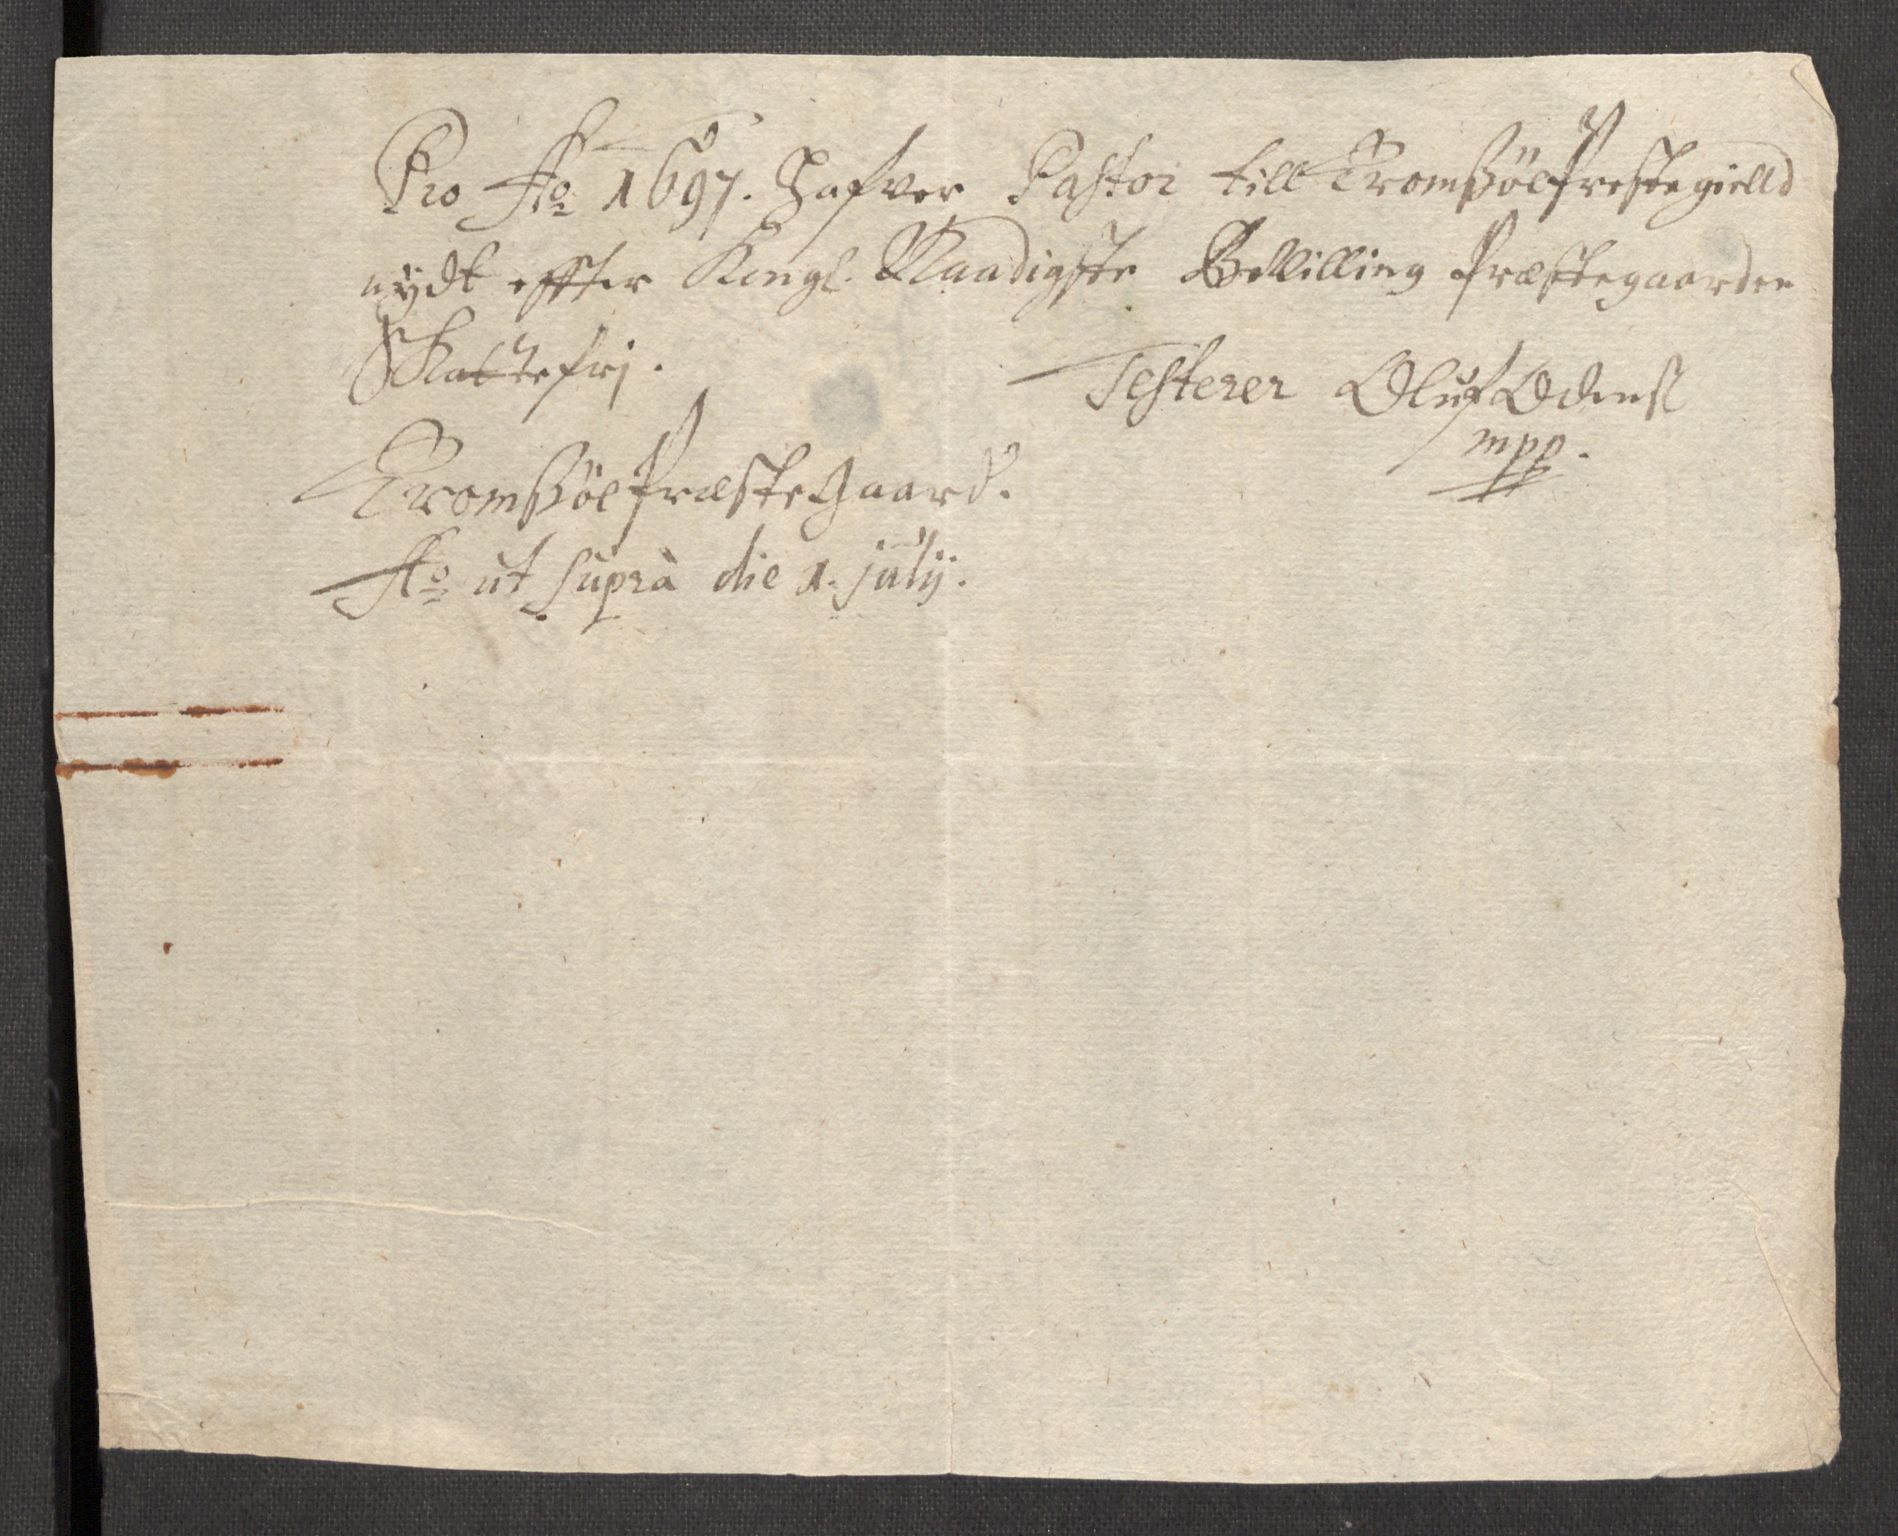 Pro Ao 1697. Hafver Pastor till Tromßöe Prestegielld
nydt effter Kongl. Naadigste Bevilling Præstegaarden
Skattefrj.
Testerer Oluf Odens.
mpp.
Tromßöe Præstegaard.
Ao ut suprà die 1. julij.